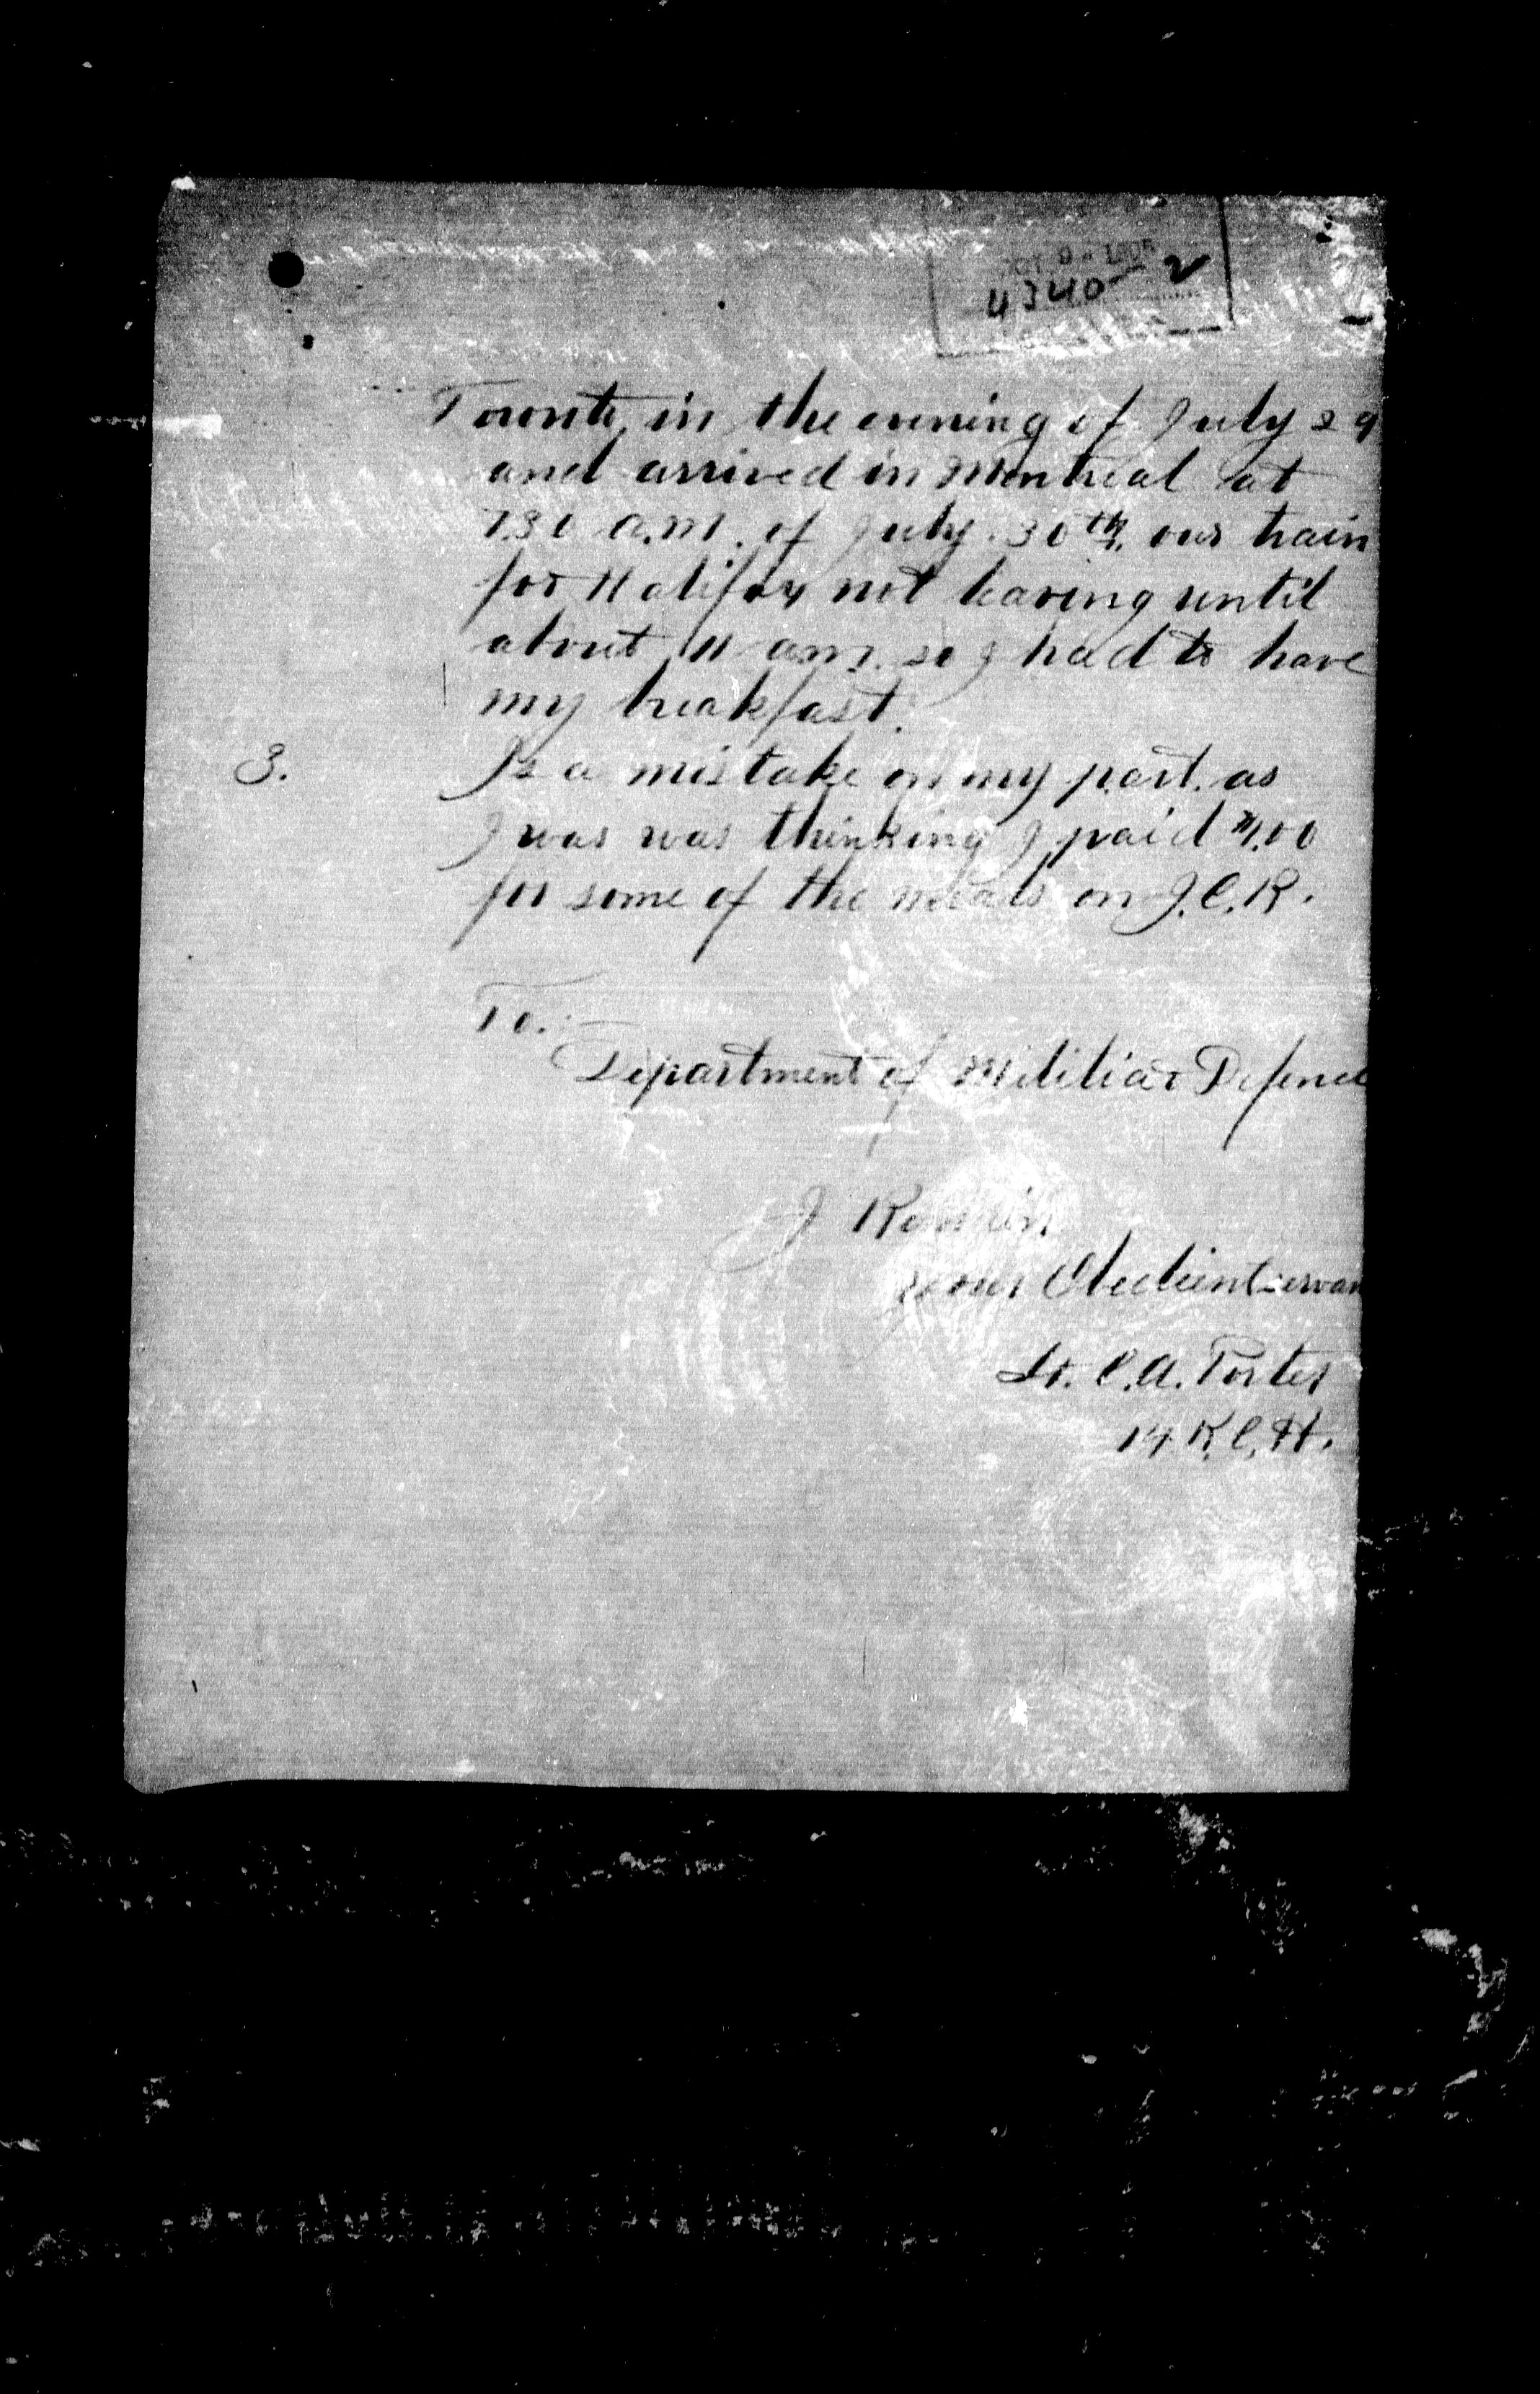 4340-2
Toronto, in the evening of July 29
and arrived in Montreal at
7.30 a.m. of July. 30th. our train
for Halifax not leaving until
about 11 a.m. so I had to have
my breakfast.
3. Is a mistake on my part. as
I was was thinking I paid $1.00
for some of the meals on I.C.R.
To.
Department of Militia & Defence
I Remain
Your Obedient servan
Lt. C.A. Porter
14 K.C.H.